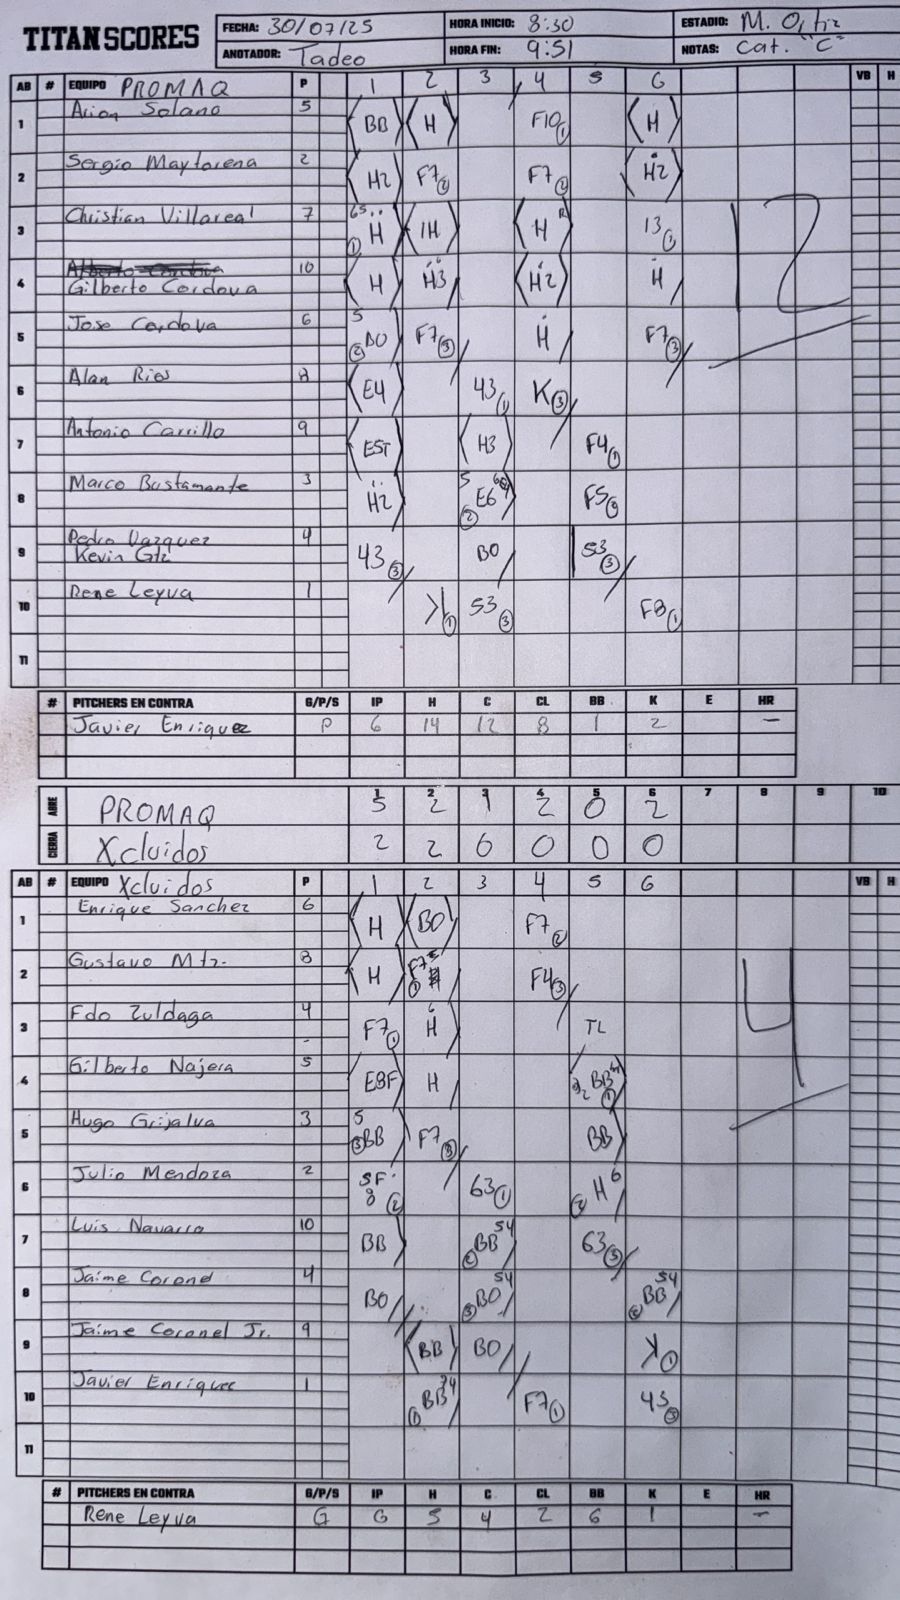 TITAN SCORES
FECHA: 30/07/25 HORA INICIO: 8:30 ESTADIO: M. Ortiz
ANOTADOR: Tadeo HORA FIN: 9:51 NOTAS: Cat. "C"
AB # EQUIPO PROMAQ P 1 2 3 4 5 6 VB H
1 Arion Solano 5 BB H F10 1 H
2 Sergio Maytorena 2 H2 F7 2 F7 2 H2
3 Christian Villareal 7 65 1 H 1H H R 13
4 Gilberto Cordova 10 H H3 H2 H
5 Jose Cordova 6 5 2 BO F7 3 H F7 3
6 Alan Rios 8 E4 43 1 K 3
7 Antonio Carrillo 9 E5T H3 F4 1
8 Marco Bustamante 3 H2 5 2 E6 F5
9 Pedro Vazquez 4
Kevin Gtz 43 3 BO 53 3
10 Rene Leyva 1 K 1 53 3 F8 1
11
12
# PITCHERS EN CONTRA G/P/S IP H C CL BB K E HR
Javier Enriquez P 6 14 12 8 1 2 –
1 2 3 4 5 6 7 8 9 10
ABRE PROMAQ 5 2 1 2 0 2
CIERRA Xcluidos 2 2 0 0 0 0
AB # EQUIPO Xcluidos P 1 2 3 4 5 6 VB H
1 Enrique Sanchez 6 H BO F7 2
2 Gustavo Mtz. 8 H F7 1 F4 3
3 Fdo Zuldaga 4 F7 1 H 6 TL
4 Gilberto Najera 5 E8F H BB 1
5 Hugo Grijalva 3 5 3 BB F7 3 BB
6 Julio Mendoza 2 SF 8 2 63 1 H 6
7 Luis Navarro 10 BB BB 54 2 63 3
8 Jaime Coronel 4 BO BO 54 3 BB 54
9 Jaime Coronel Jr. 9 BB BO K 1
10 Javier Enriquez 1 BB F7 1 43
11
4
# PITCHERS EN CONTRA G/P/S IP H C CL BB K E HR
Rene Leyva G 6 5 4 2 6 1 –